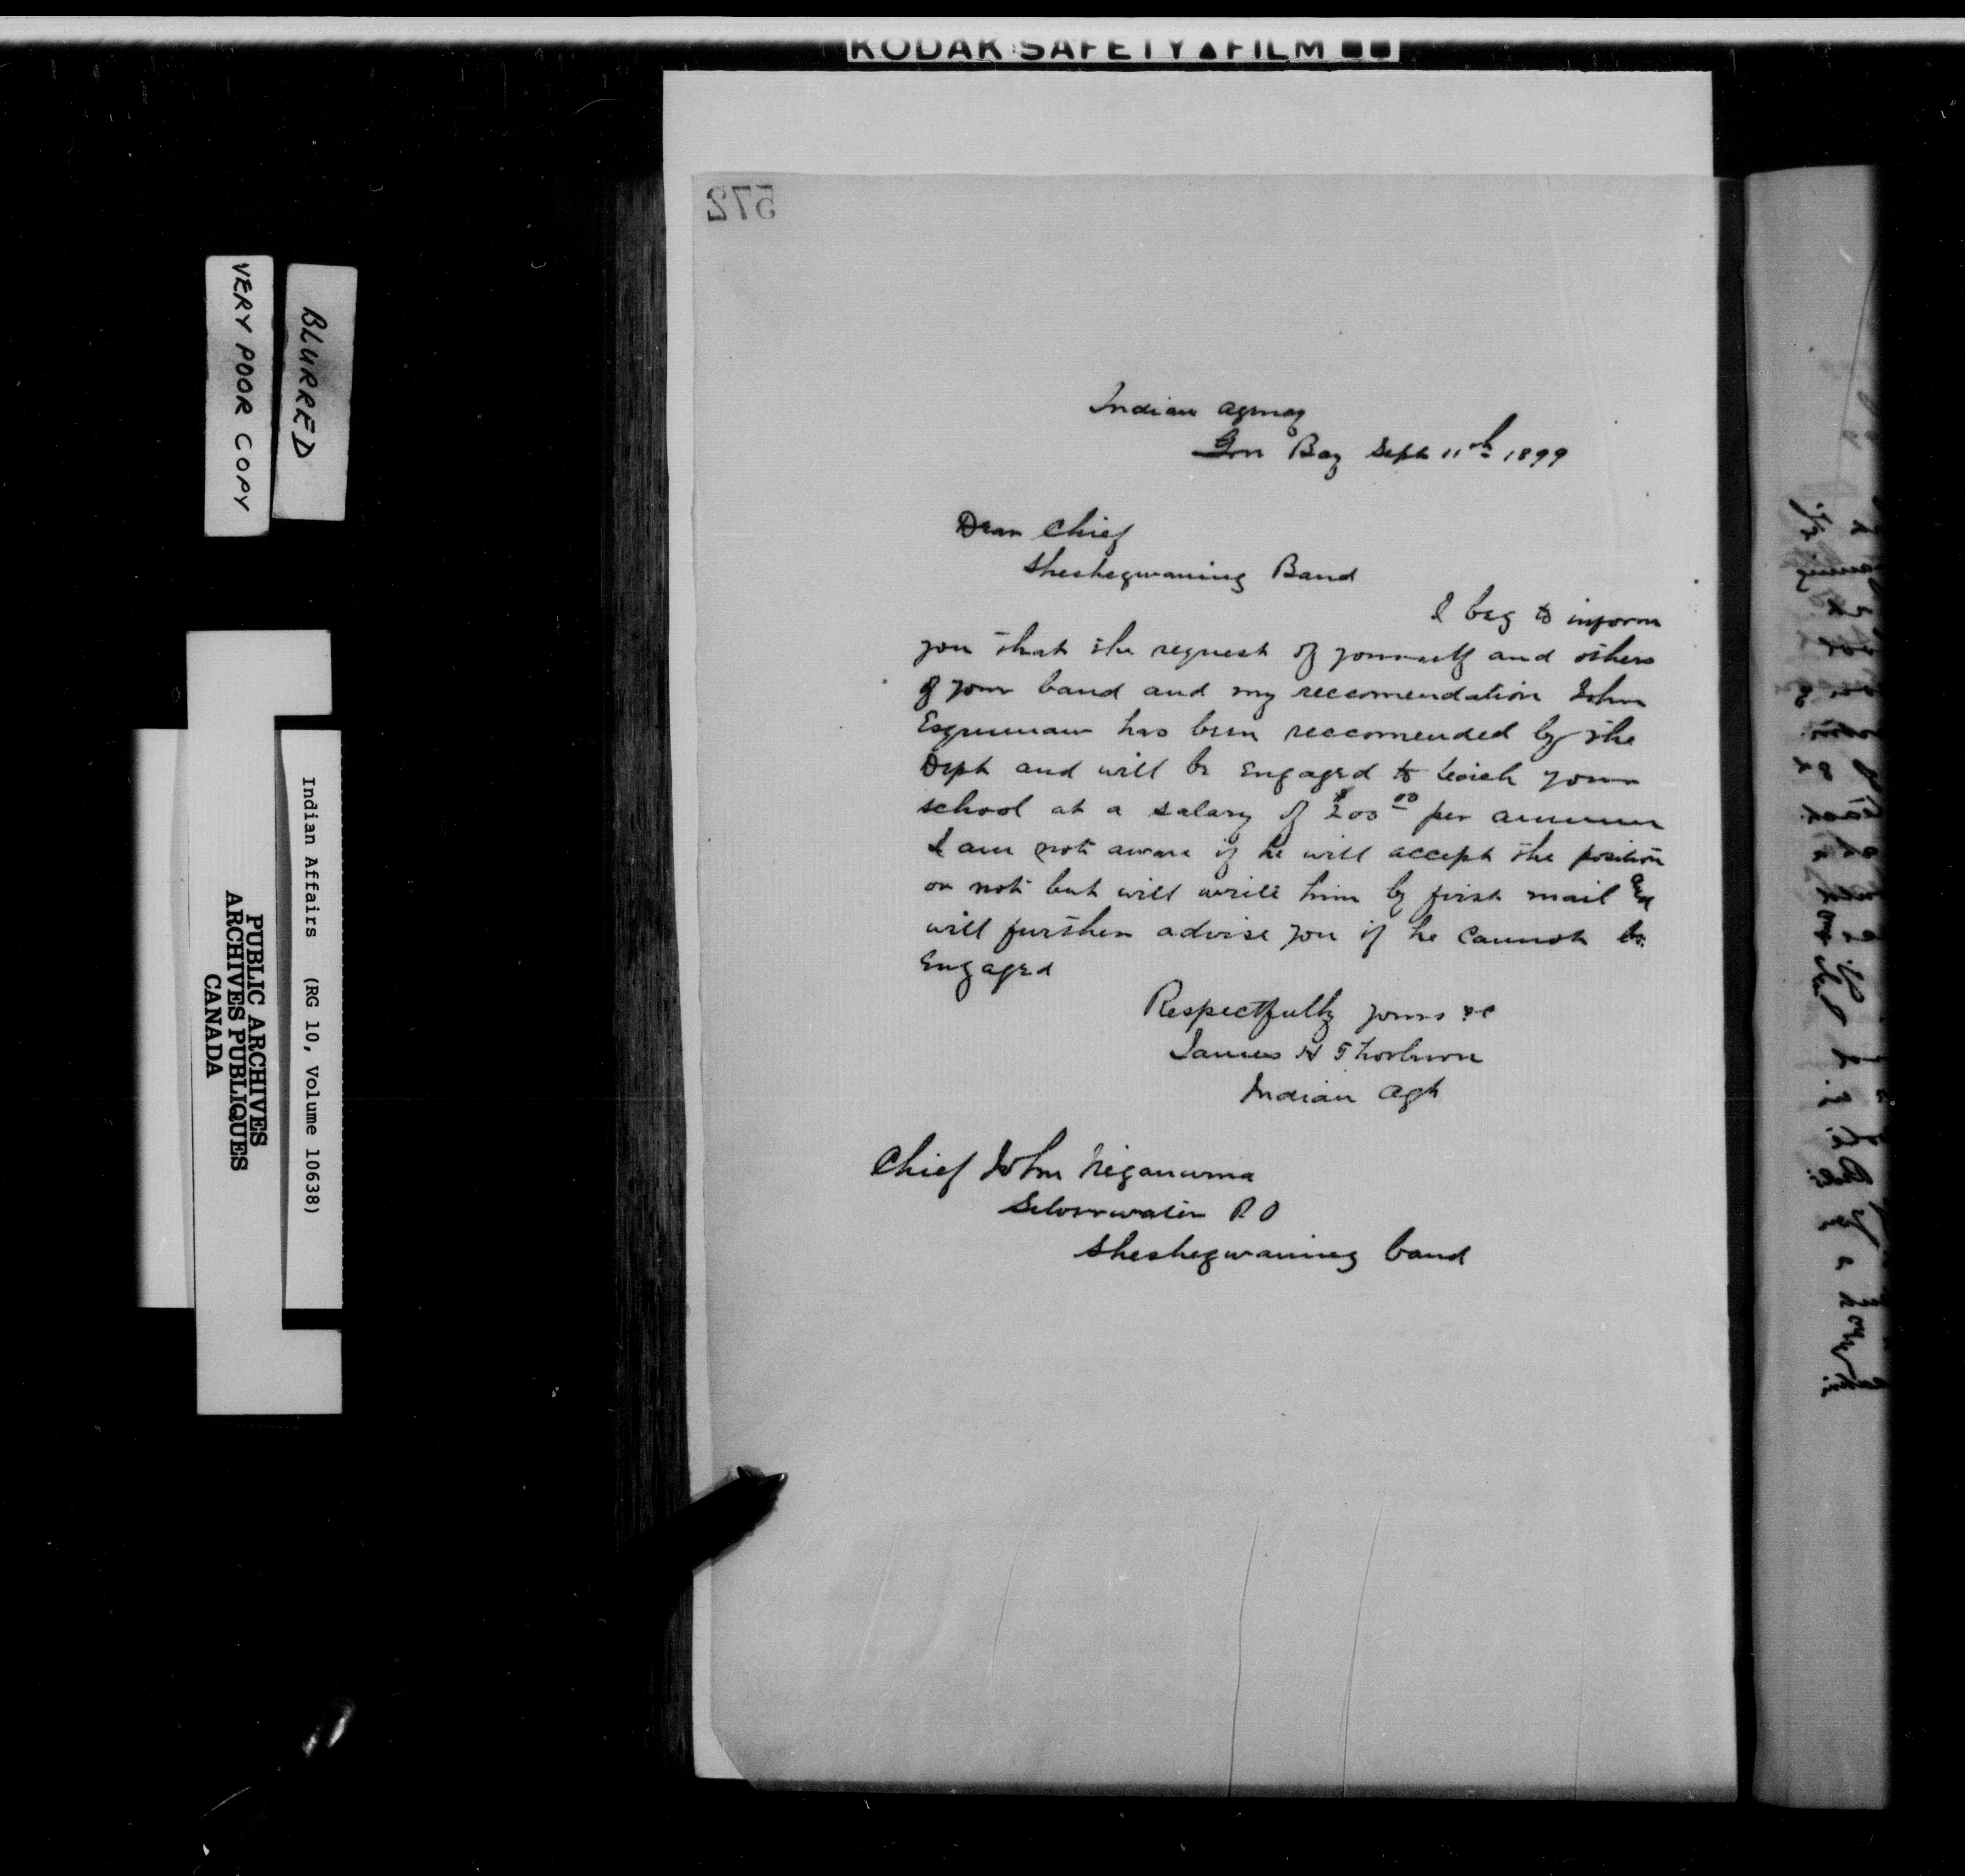 KODAK SAFETY FILM
572
Indian Agency
Gore Bay Sept 11th 1899
Dear Chief
Sheshegwaning Band
I beg to inform
you that the request of yourself and others
of your band and my reccomendation John
Esquimaw has been reccomended by the
Dept and will be Engaged to teach your
school at a salary of $200 00 per annum
I am not aware if he will accept the position
or not but will write him by first mail and
will further advise you if he cannot be
Engaged
Respectfully yours &c
James H Thorburn
Indian Agt
Chief John
Silverwater P O
Sheshegwaning band
BLURRED
VERY POOR COPY
Indian Affairs (RG 10, Volume 10638)
PUBLIC ARCHIVES
ARCHIVES PUBLIQUES
CANADA